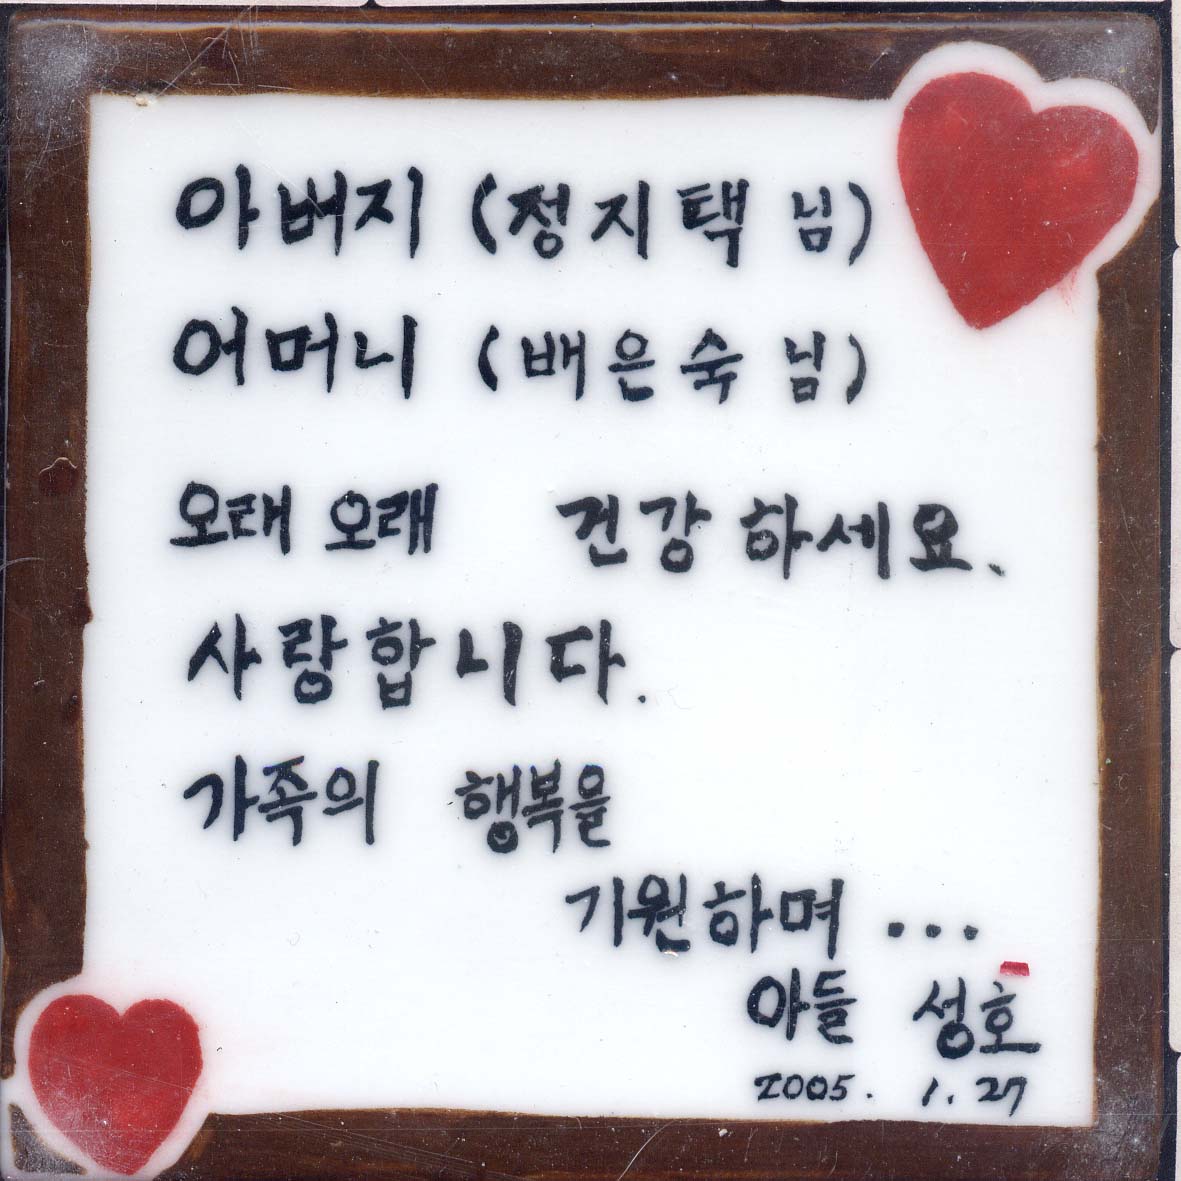 아버지 (정지택 님)
어머니 (배은숙 님)
오래 오래 건강하세요.
사랑합니다.
가족의 행복을
기원하며 ...
아들 성호
2005. 1. 27